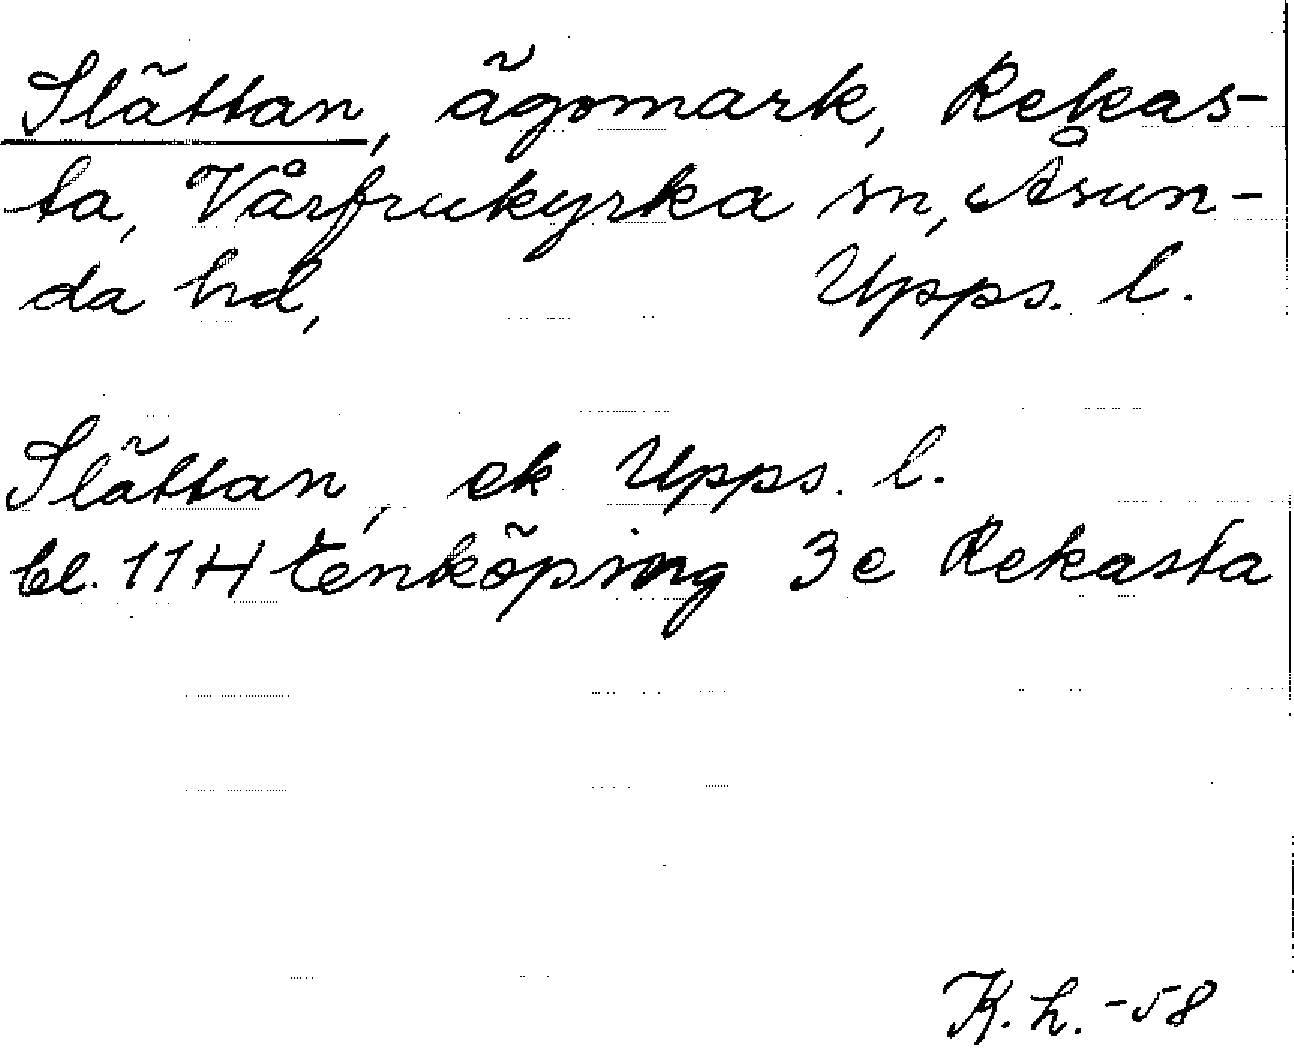 Slättan, ägomark, Rekas-
ta, Vårfrukyrka sn, Åsun-
da hd, Upps. l.
Slättan, ek Upps. l.
bl. 11H Enköping 3e Rekasta
K. h. -58